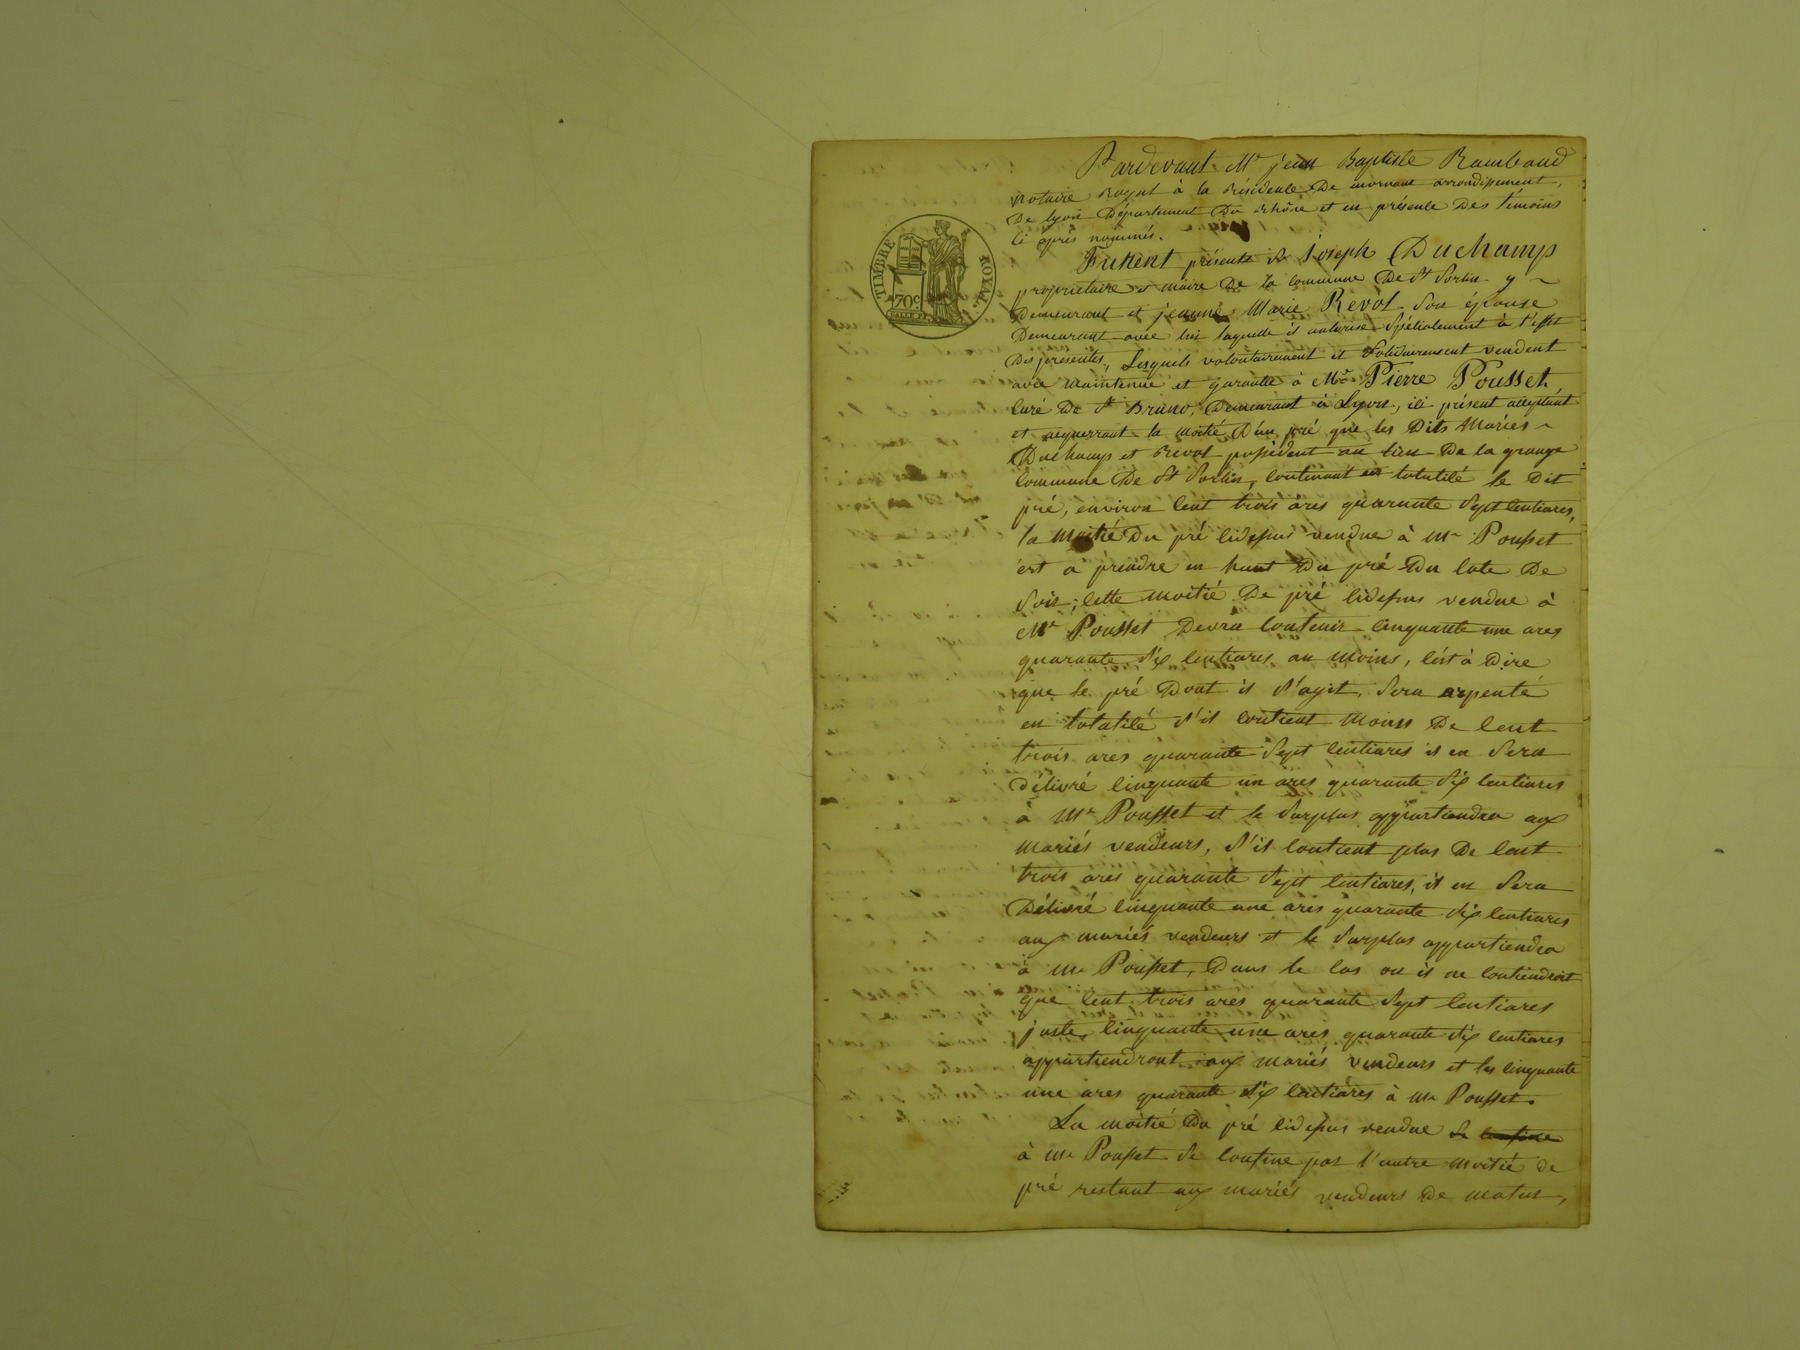 TIMBRE ROYAL
70c
Pardevant Mr jean Baptiste Rambaud
Notaire Royal à la Résidence De mornant arrondissement,
De lyon Département Du Rhône et en présence Des témoins
ci après nommés.
Furent présents Sr Joseph Duchamp
propriétaire et maire De la commune De St Sorlin y
Demeurant et jeanne Marie Revol Son épouse
Demeurant avec lui laquelle il autorise Spécialement à l'effet
Des présentes, Lesquels volontairement et Solidairement vendent
avec maintenue et garantie à Mr Pierre Pousset,
curé De St Bruno, Demeurant à Lyon, ici présent acceptant
et acquerrant la moitié D'un pré que les Dits Mariés
Duchamp et Revol possèdent au lieu De la grange
commune De St Sorlin, contenant en totalité le Dit
pré, environ cent trois ares quarante Sept centiares,
la moitié Du pré cidessus vendue à Mr Pousset
est à prendre en haut Du pré Du coté De
Soir; cette moitié De pré cidessus vendue à
Mr Pousset Devra contenir cinquante une ares
quarante Six centiares au moins, c'est à Dire
que le pré Dont il S'agit, Sera arpenté
en totalité S'il contient Moins De cent
trois ares quarante Sept centiares il en Sera
Délivré cinquante un ares quarante Six centiares
à Mr Pousset et le Surplus appartiendra aux
mariés vendeurs, S'il contient plus De cent
trois ares quarante Sept centiares, il en Sera
Délivré cinquante une ares quarante Six centiares
aux mariés vendeurs et le Surplus appartiendra
à Mr Pousset, Dans le cas ou il ne contiendroit
que cent trois ares quarante Sept centiares
juste, cinquante une ares quarante Six centiares
appartiendront aux mariés vendeurs et les cinquante
une ares quarante Six centiares à Mr Pousset.
La moitié Du pré cidessus vendue Se confine
à Mr Pousset Se confine par l'autre moitié de
pré restant aux mariés vendeurs De matin,